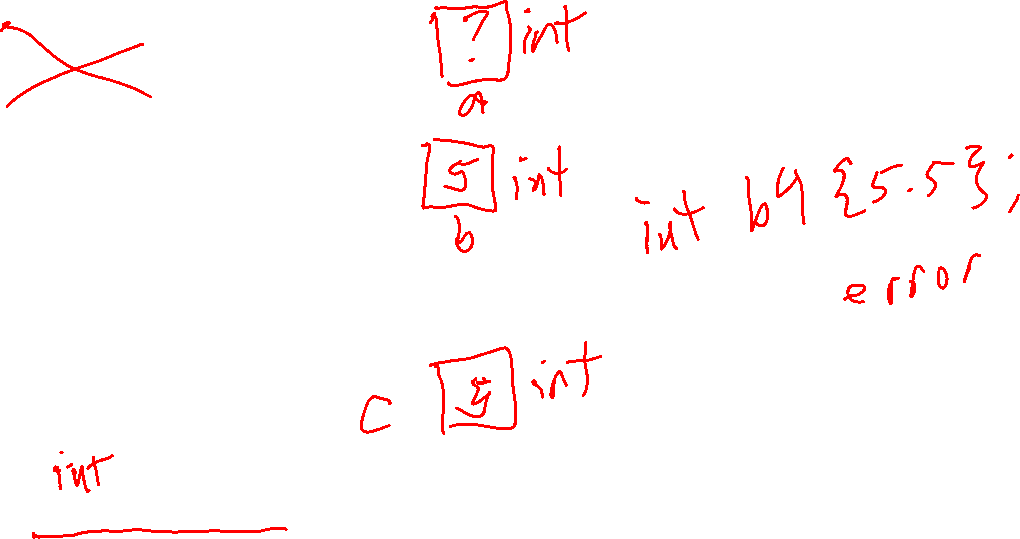 ? int
a
5 int
b
int b4 {5.5};
error
c 5 int
int